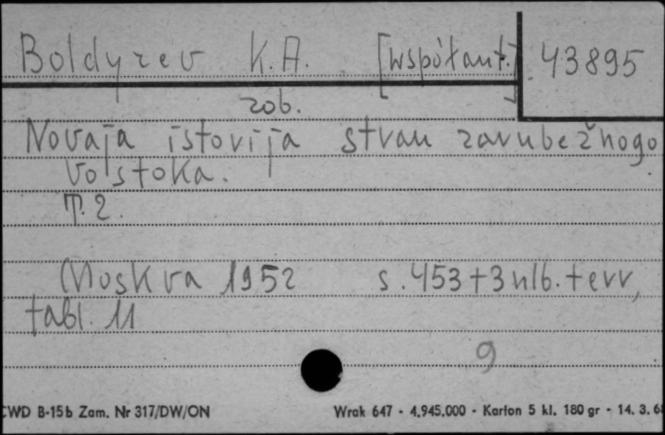 Boldyrev K.A. [współaut.] 43895
zob.
Novaja istorija stran zarubežnogo
Vostoka.
T. 2.
Moskva 1952 s. 453 + 3 nlb. + err,
tabl. 11
9
CWD B-15b Zam. Nr 317/DW/ON Wrak 647 - 4.945.000 - Karton 5 kl. 180 gr - 14. 3. 6